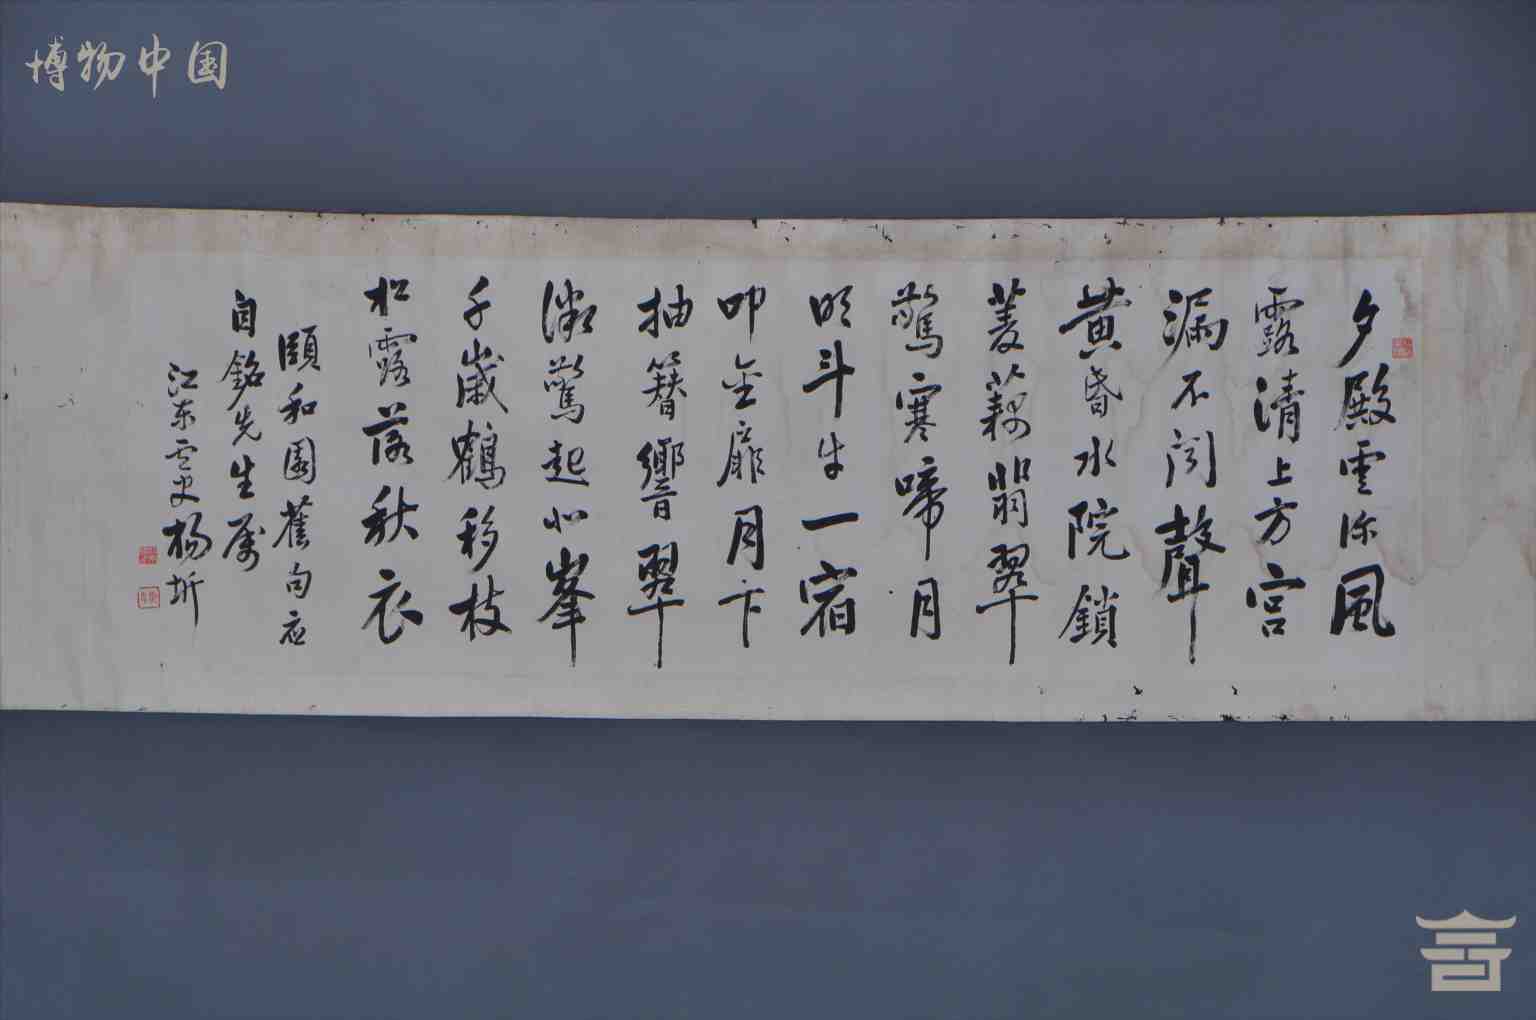 博物中国
夕殿雲深風
露清上方宮
漏不聞聲
黃昏水院鎖
菱藕翡翠
驚寒啼月
明斗牛一宿
叩金扉月下
抽簪響翠
微驚起北峯
千歲鶴移枝
松露落秋衣
頤和園舊句应
自銘先生属
江东雲史楊圻